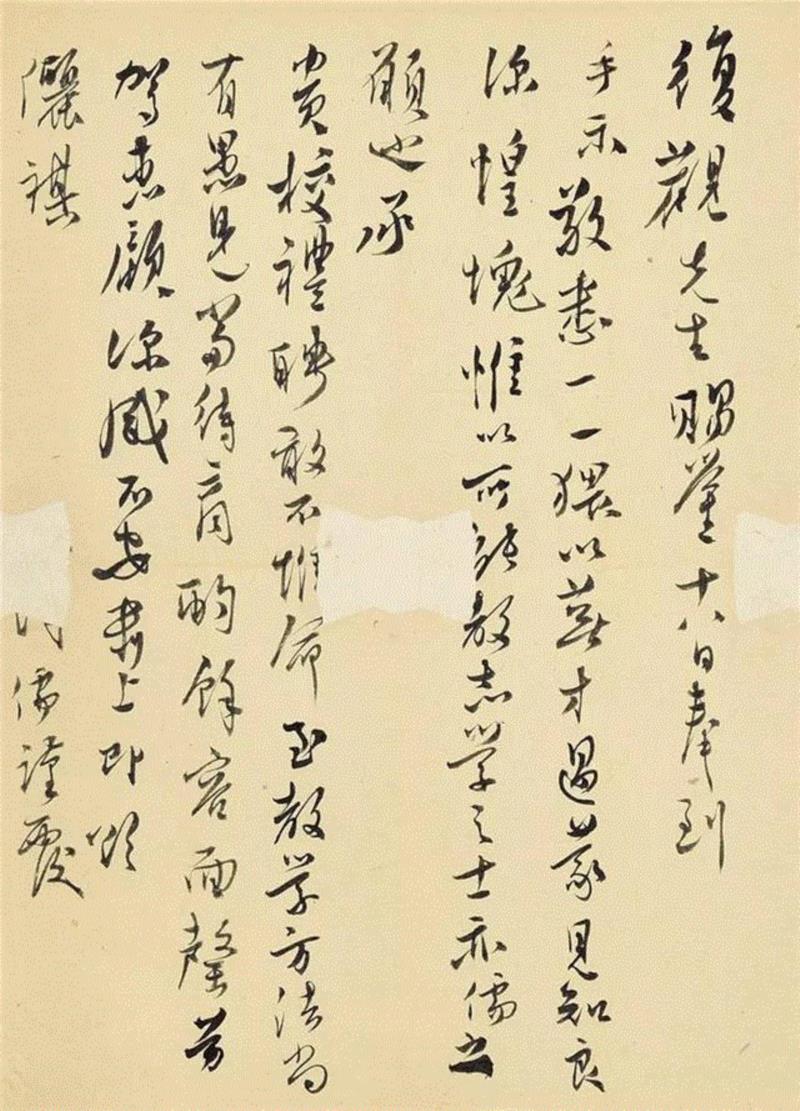 復觀先生賜鑒十八日奉到
手示敬悉一一猥以菲才過蒙見知良
深惶愧惟以所能教志學之士亦儒之
願也承
貴校禮聘敢不惟命至教學方法尚
有愚見當待商酌餘容面罄勞
駕惠顧深感不安肅上即頌
儷祺 儒謹覆